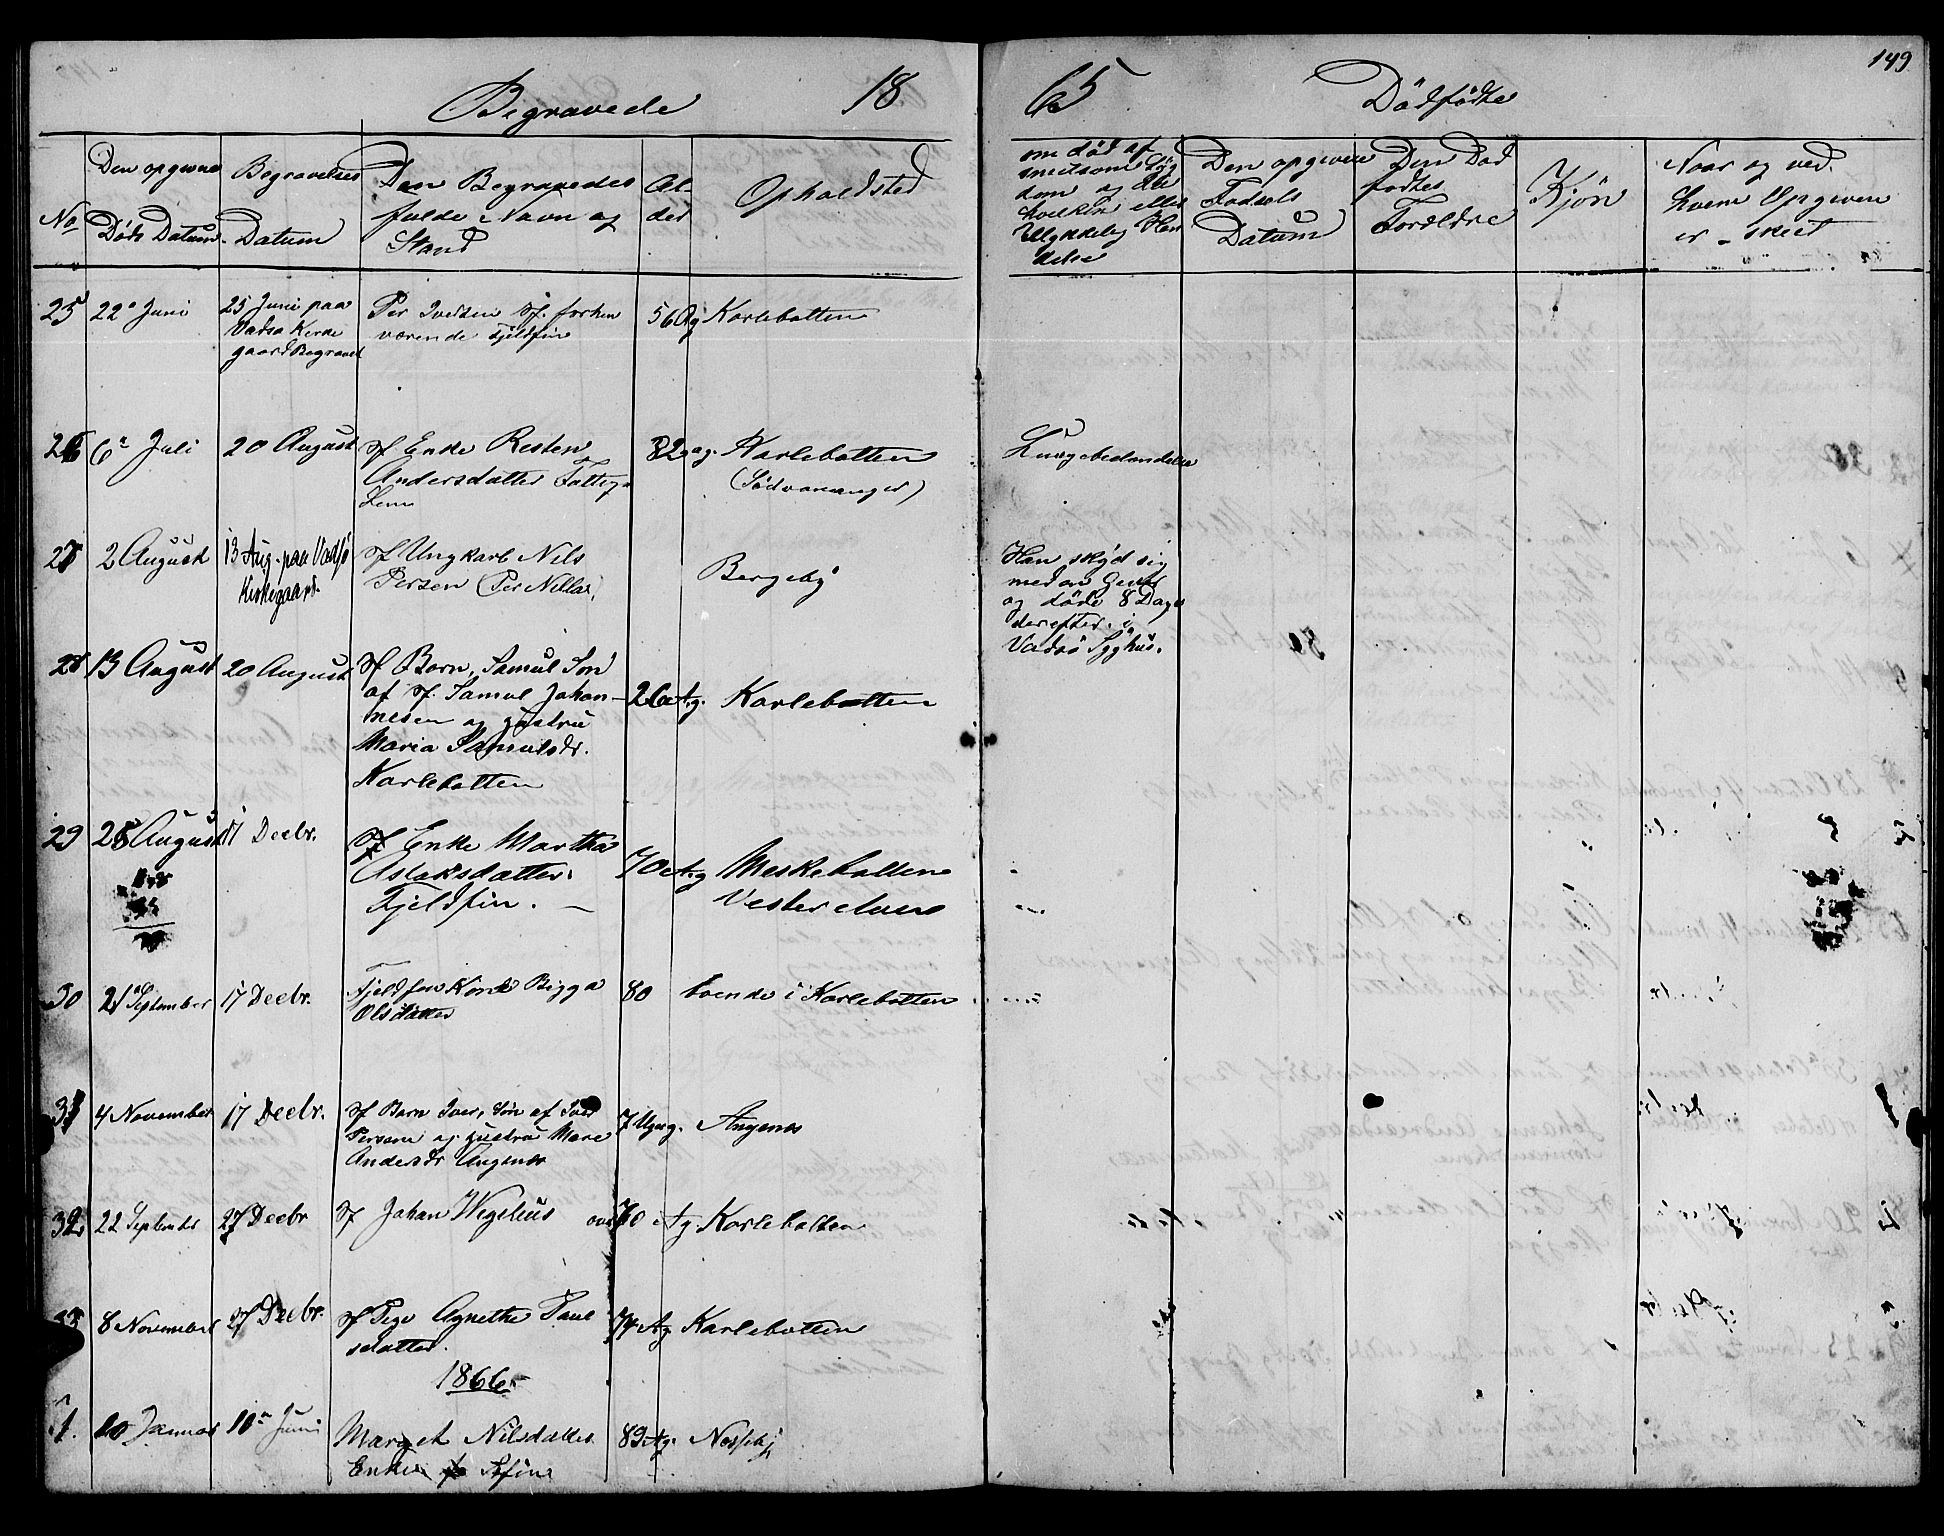 149
Begravede 18 65 Dödfödte
No
Den opgivne Döds Datum
Begravelses Datum
Den Begravedes fulde Navn og Stand
Al-
der
Opholdsted
om död af
smitsom Syg
dom og
hvilken eller
Ulykkelig Hæn
delse
Den opgivne
Födsels
Datum
Den Död
fødtes
Forældre
Kjön
Naar og ved
hvem Opgiven
er skeet
25 22 Juni
25 Juni paa
Vadsø Kirke
gaard Begravet
Per Iversen Sf. forhen
værende Fjeldfin
56 Ag Karlebotten
26 6 Juli 20 August
Sf Enke Resten
Andersdatter Fattig
Lem
82 ag. Karlebotten
(Sydvaranger)
Lungebetændelse
27 2 August
13 Aug. paa Vadsö
Kirkegaard.
Sf Ungkarl Nils
Persen (Per Nillas)
Bergeby
Han skjöd sig
med en Gevær
og döde 8 Dage
derefter i
Vadsö Syghus.
28 13 August 20 August
Sf Barn, Samul Sön
af Sf. Samul Johan-
nesen og Hustru
Maria Samulsdr.
Karlebotten
Karlebotten
29 28 August 17 Decbr.
Sf Enke Martha
Aslaksdatter
Fjeldfin. —
70 Ag Meskebotten
30 21 September 17 Decbr.
Fjeldfin Kone Bigga
Olsdatter
80 boende i Karlebotten
31 4 November 17 Decbr.
Sf Barn Iver, Sön af Iver
Persen og Hustru Mare
Andersdr Angsnes
7 Ug. Angsnes
32 22 September 27 Decbr
Sf Johan Wegelius over 70 Ag Karlebotten
33 8 November 27 Decbr.
Sf Pige Agnethe Paul
sdatter.
74 Ag Karlebotten
1866
1. 20 Januar 10 Juni
Marget Nilsdatter
Enke Sfin
89 Ag. Nesseby